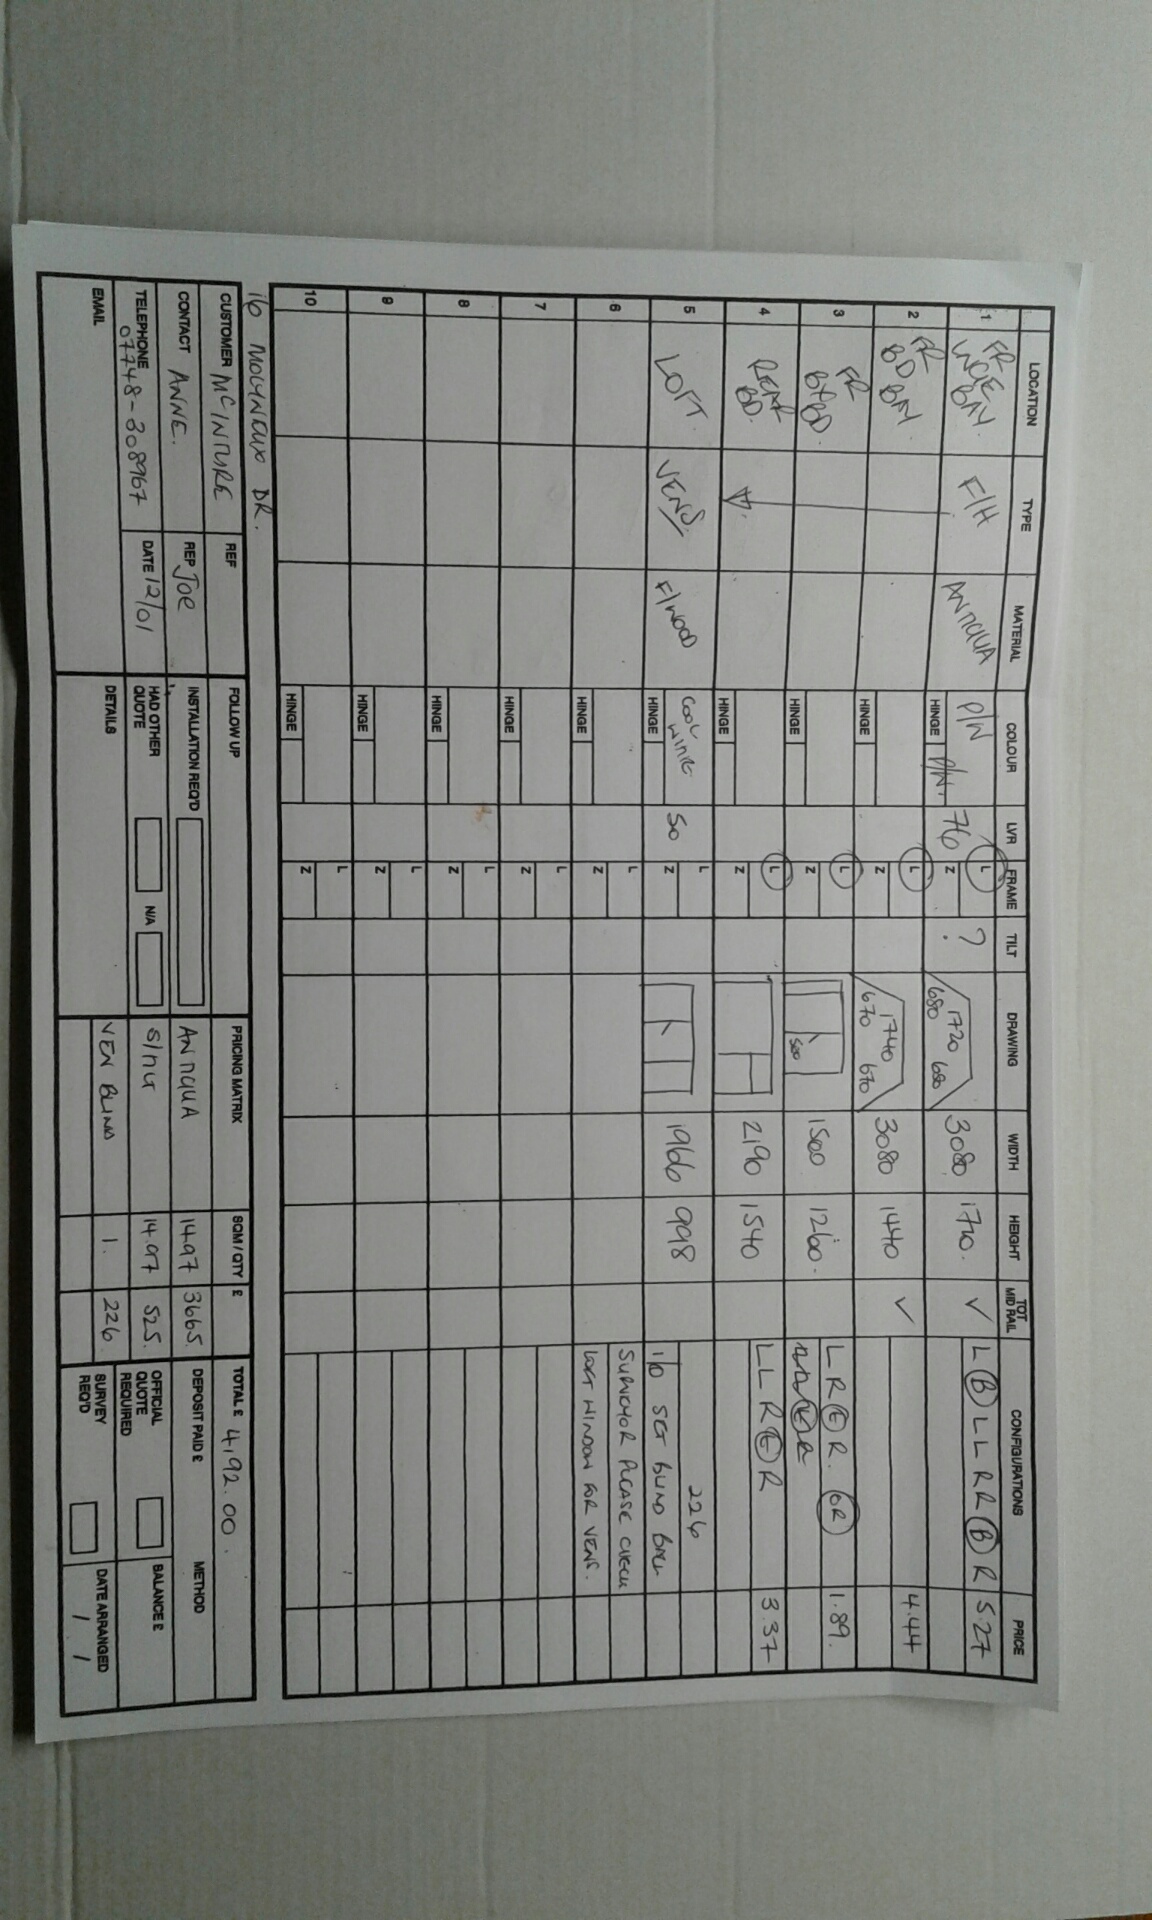 LOCATION TYPE MATERIAL COLOUR LVR FRAME TILT DRAWING WIDTH HEIGHT TOT MID RAIL CONFIGURATIONS PRICE
1 FR BAY F/H ANTIQUA P/W 76 L ? 1720 3080 1710. ✓ L B L L R R B R 5.27
HINGE P/W. Z 680 680
2 FR BD BAY L 1740 3080 1440 ✓ 4.44
HINGE Z 670 670
3 FR BXBD. L 1500 1260. L R E R. OR 1.89.
HINGE Z 500
4 REAR BD. L 2190 1540 L L R E R 3.37
HINGE Z
5 LOFT. VENS F/WOOD COOL WHITE 50 L 1966 998 226
HINGE Z I/O SET BLIND BACK
6 L SURVEYOR PLEASE CHECK
HINGE Z LOFT WINDOW FOR VENS.
7 L
HINGE Z
8 L
HINGE Z
9 L
HINGE Z
10 L
HINGE Z
16 MOLYNEUX DR.
CUSTOMER McINTURE REF FOLLOW UP PRICING MATRIX SQM / QTY £ TOTAL £ 4,192.00. METHOD
CONTACT ANNE. REP JOE INSTALLATION REQ'D ANTIQUA 14.97 3665. DEPOSIT PAID £ BALANCE £
TELEPHONE 07748-308967 DATE 12/01 HAD OTHER QUOTE N/A 14.97 525. OFFICIAL QUOTE REQUIRED
EMAIL DETAILS VEN BLIND 1. 226 SURVEY REQ'D DATE ARRANGED / /